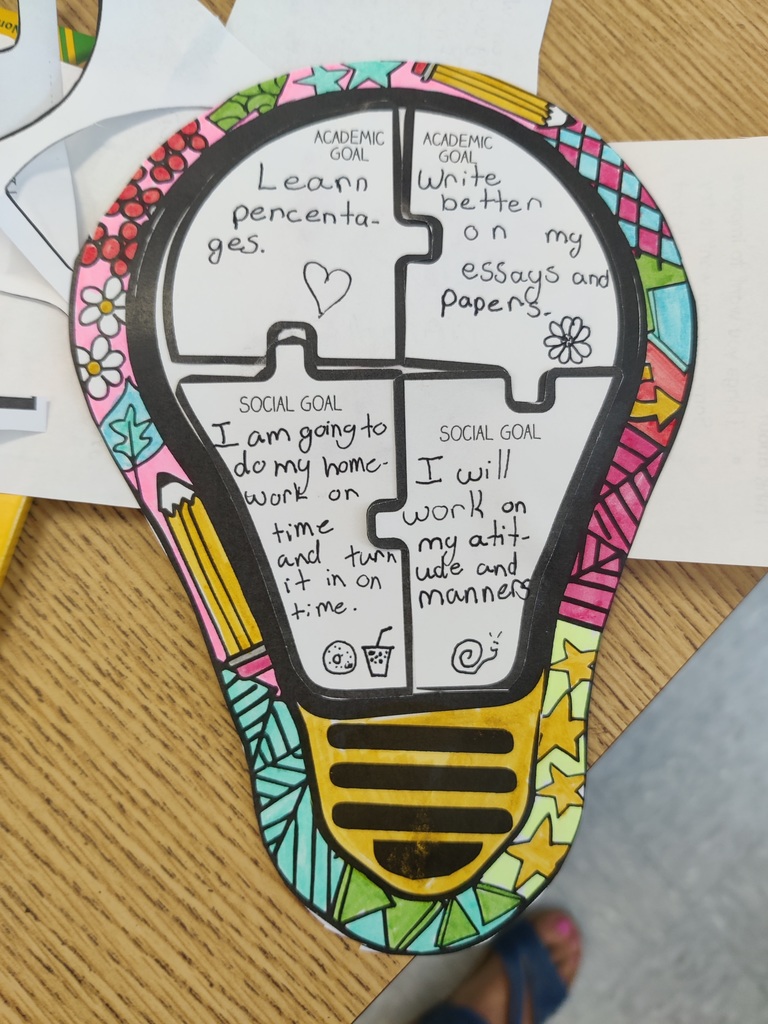 ACADEMIC
GOAL
Learn
percenta-
ges.
ACADEMIC
GOAL
Write
better
on my
essays and
papers.
SOCIAL GOAL
I am going to
do my home-
work on
time
and turn
it in on
time.
SOCIAL GOAL
I will
work on
my atit-
ude and
manners